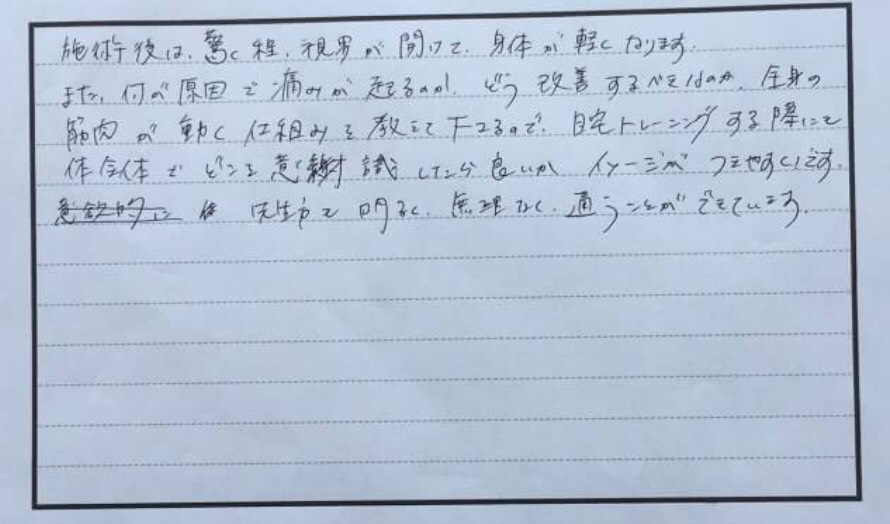 施術後は、驚く程、視界が開けて、身体が軽くなります。
また、何が原因で痛みが起るのか、どう改善するべきなのか、全身の
筋肉が動く仕組みを教えて下さるので、自宅トレーニングする際にも
体全体でどこを意識したら良いか イメージがつきやすくいです。
意欲的に 先生方も明るく、無理なく、通うことができています。